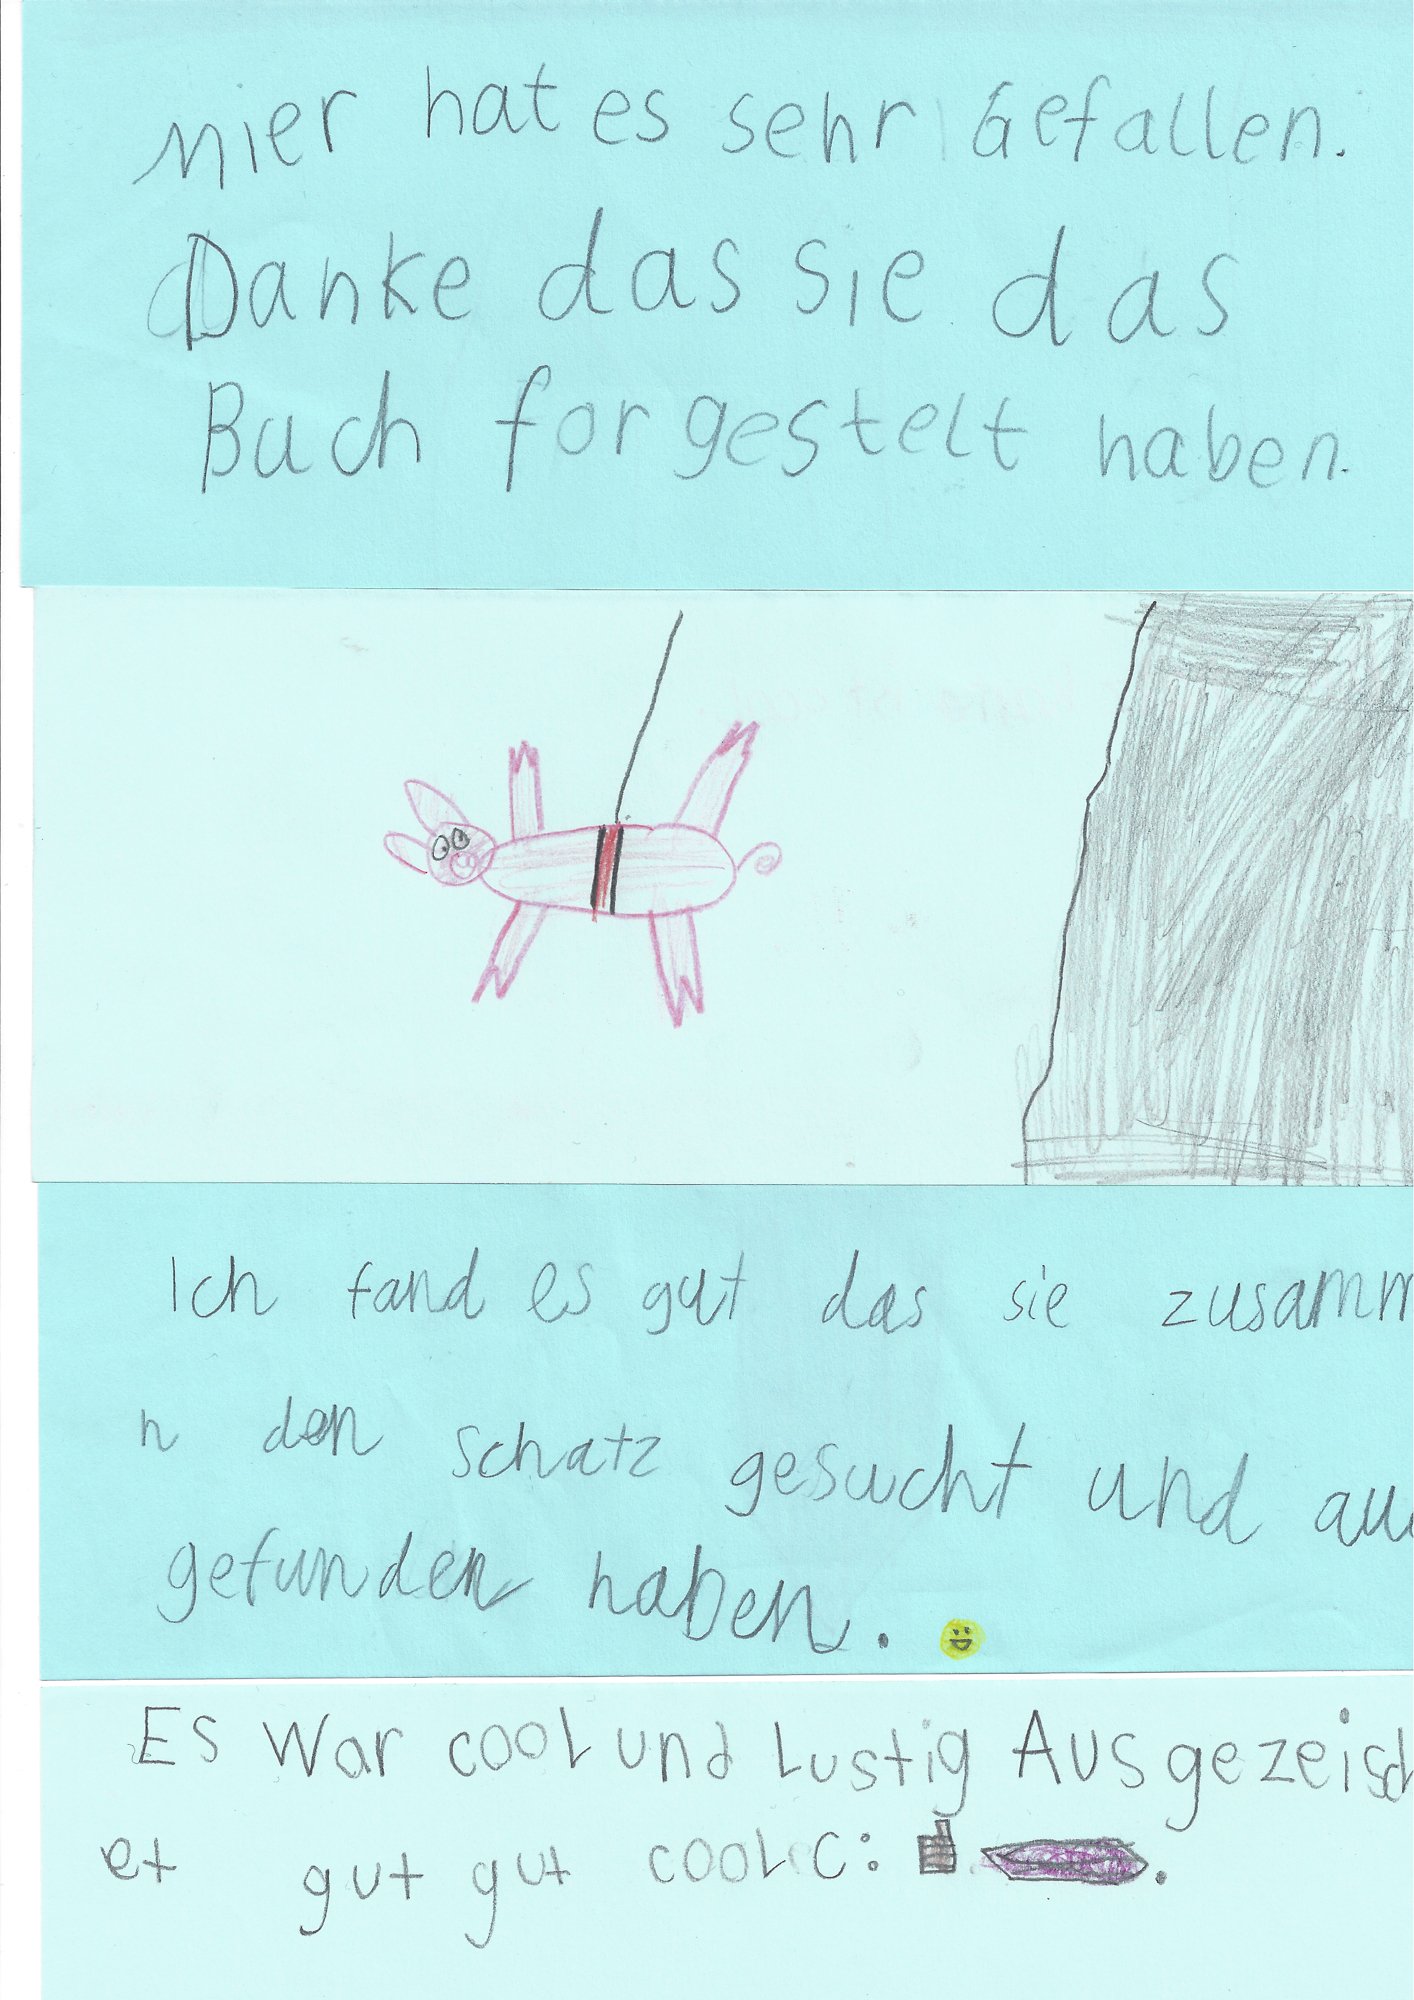 Mier hat es sehr Gefallen.
Danke das sie das
Buch forgestelt haben.
Ich fand es gut das sie zusamm
n den schatz gesucht und auc
gefunden haben.
Es War cool und Lustig Ausgezeich
et gut gut cool c: